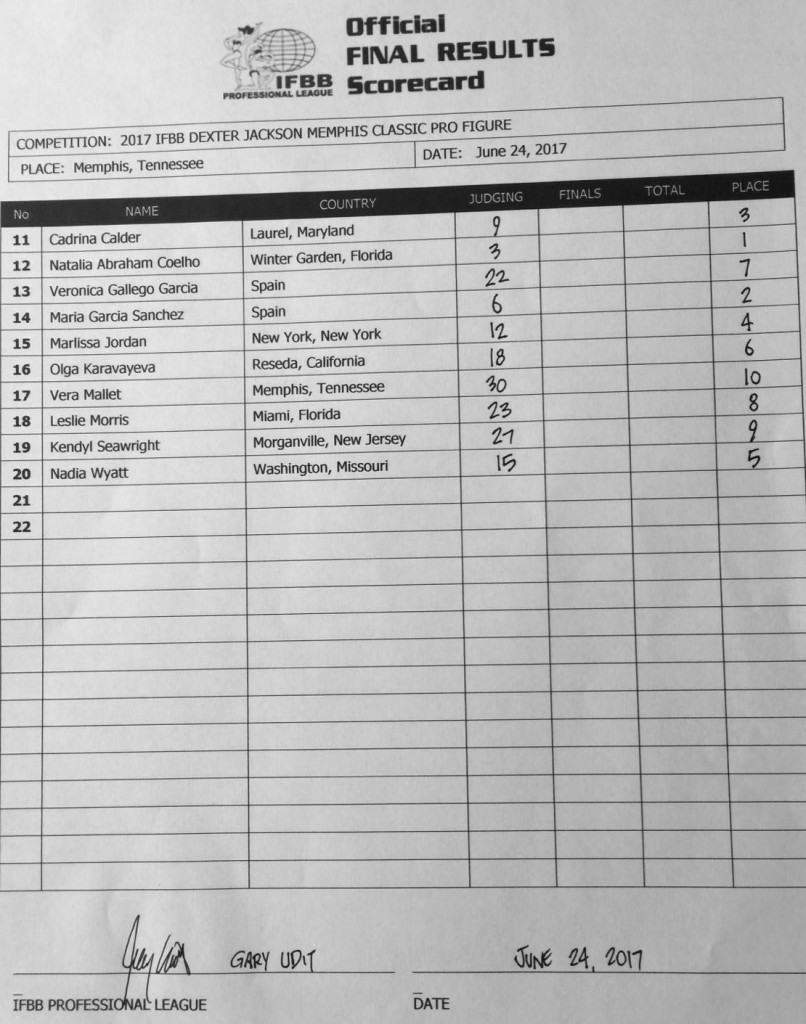 Official
FINAL RESULTS
IFBB
PROFESSIONAL LEAGUE
Scorecard
COMPETITION: 2017 IFBB DEXTER JACKSON MEMPHIS CLASSIC PRO FIGURE
PLACE: Memphis, Tennessee DATE: June 24, 2017
No NAME COUNTRY JUDGING FINALS TOTAL PLACE
11 Cadrina Calder Laurel, Maryland 9 3
12 Natalia Abraham Coelho Winter Garden, Florida 3 1
13 Veronica Gallego Garcia Spain 22 7
14 Maria Garcia Sanchez Spain 6 2
15 Marlissa Jordan New York, New York 12 4
16 Olga Karavayeva Reseda, California 18 6
17 Vera Mallet Memphis, Tennessee 30 10
18 Leslie Morris Miami, Florida 23 8
19 Kendyl Seawright Morganville, New Jersey 27 9
20 Nadia Wyatt Washington, Missouri 15 5
21
22
GARY UDIT JUNE 24, 2017
IFBB PROFESSIONAL LEAGUE DATE